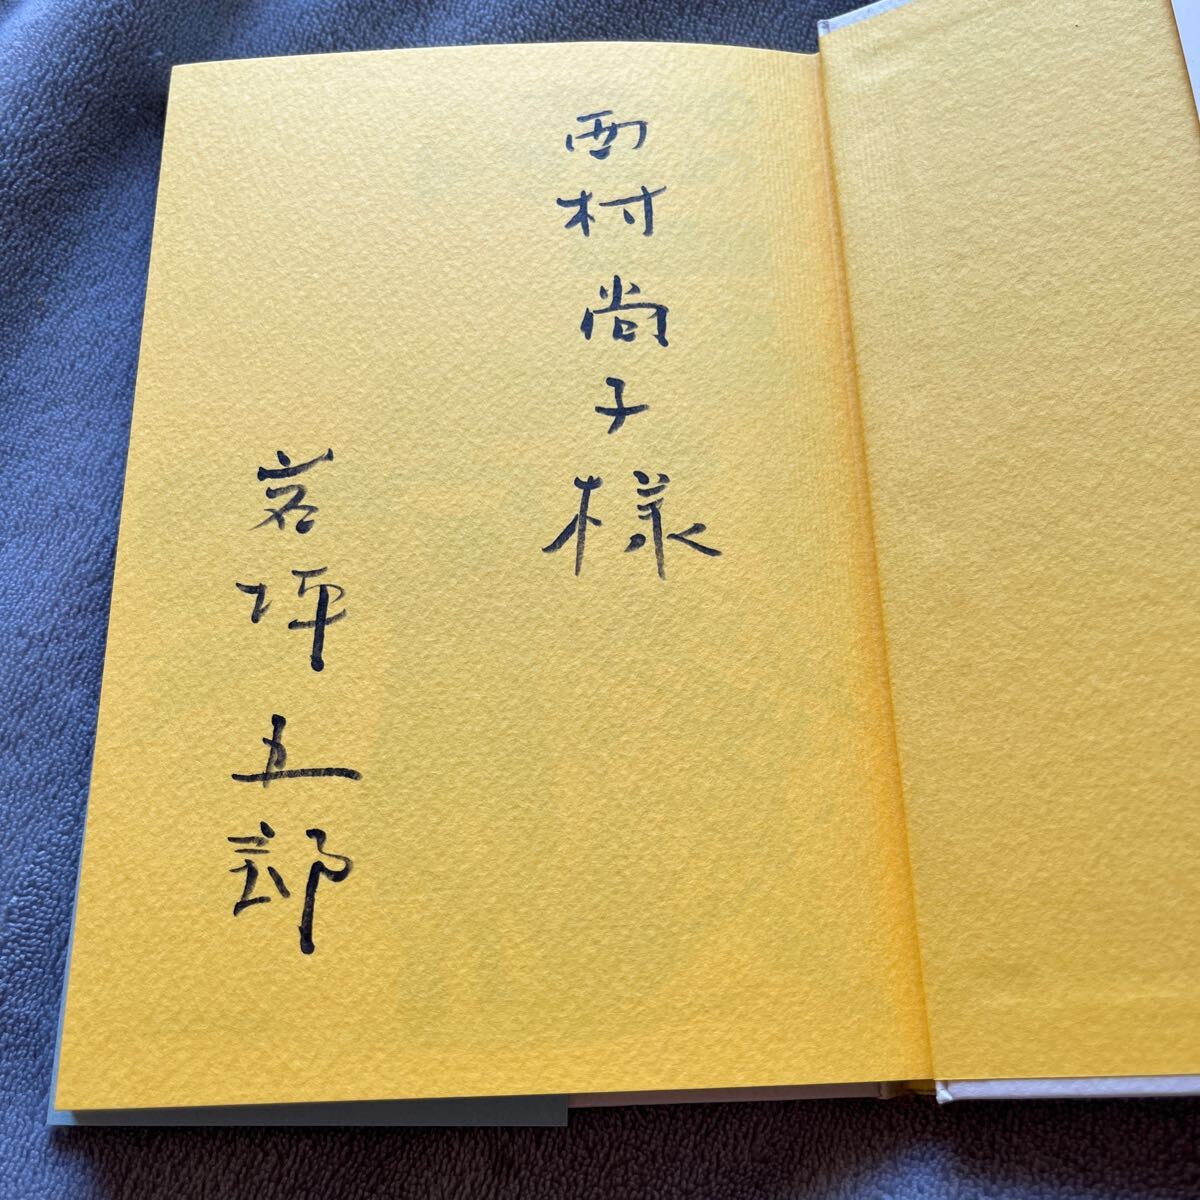 西村尚子様
岩坪五郎